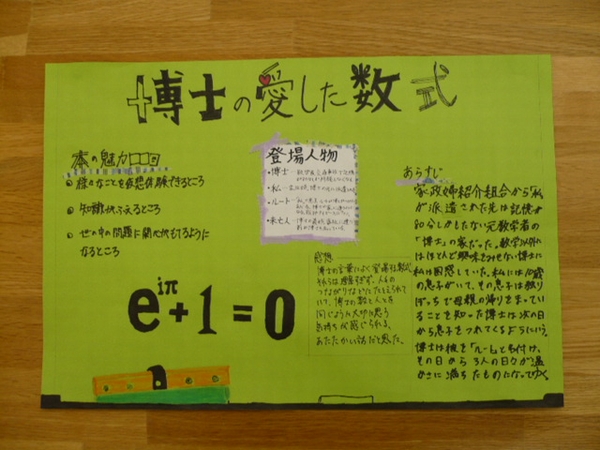 博士の愛した数式
本の魅力
様々なことを仮想体験できるところ
知識がふえるところ
世の中の問題に関心がもてるように
なるところ
登場人物
・博士
・私
・ルート
・未亡人
e^iπ+1=0
感想
博士の言葉によく登場する数式
それらは難しすぎず、人との
つながりなどにたとえられて
いて、博士の数と人を
同じように大切に思う
気持ちが感じられる、
あたたかい話だと思った。
あらすじ
家政婦紹介組合から「私」
が派遣された先は記憶が
80分しかもたない元数学者の
「博士」の家だった。数学以外に
はほとんど興味をみせない博士に
私は困惑していた。私には10歳
の息子がいて、その子は独り
ぼっちで母親の帰りをまってい
ることを知った博士は次の日
から息子をつれてくるようにいう。
博士は彼を「ルート」と名付け、
その日から3人の日々が温
かさに満ちたものになってゆく。